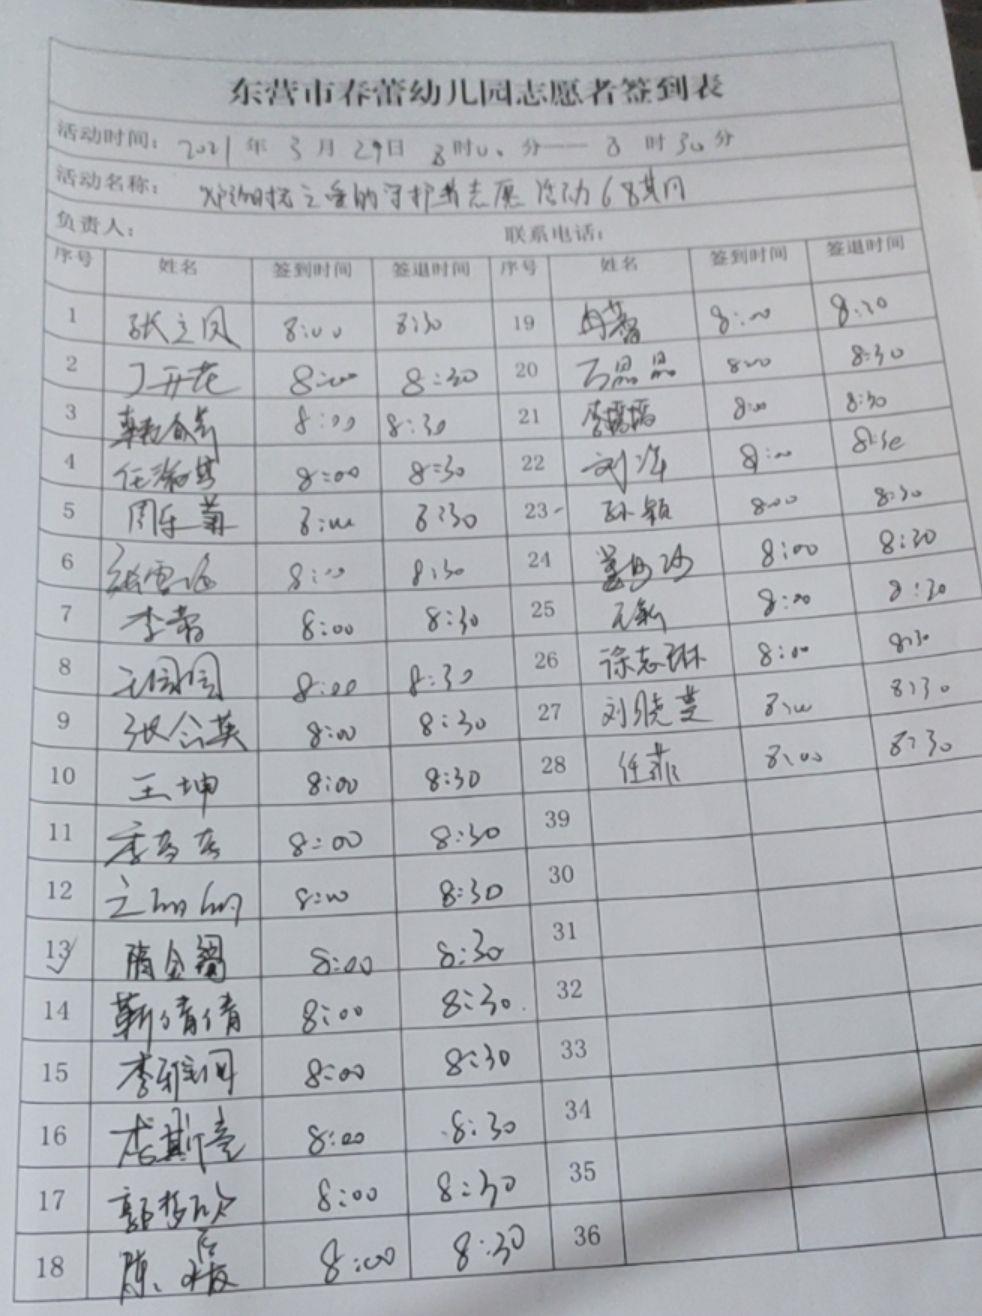 东营市春蕾幼儿园志愿者签到表
活动时间：2021年3月29日 8时00分——8时30分
活动名称： 之 的守护者志愿活动68期
负责人： 联系电话：
序号 姓名 签到时间 签退时间 序号 姓名 签到时间 签退时间
1 张立凤 8:00 8:30 19 8:00 8:30
2 丁开花 8:00 8:30 20 石晶晶 8:00 8:30
3 8:00 8:30 21 李 8:00 8:30
4 任 8:00 8:30 22 刘洋 8:00 8:30
5 周乐菊 8:00 8:30 23 孙颖 8:00 8:30
6 张雪 8:00 8:30 24 8:00 8:30
7 李菊 8:00 8:30 25 8:00 8:30
8 王園園 8:00 8:30 26 徐志琳 8:00 8:30
9 张公英 8:00 8:30 27 刘晓芸 8:00 8:30
10 王坤 8:00 8:30 28 任菲 8:00 8:30
11 8:00 8:30 39
12 8:00 8:30 30
13 隋金 8:00 8:30 31
14 靳倩倩 8:00 8:30 32
15 李雅 8:00 8:30 33
16 8:00 8:30 34
17 郭 8:00 8:30 35
18 陈 8:00 8:30 36